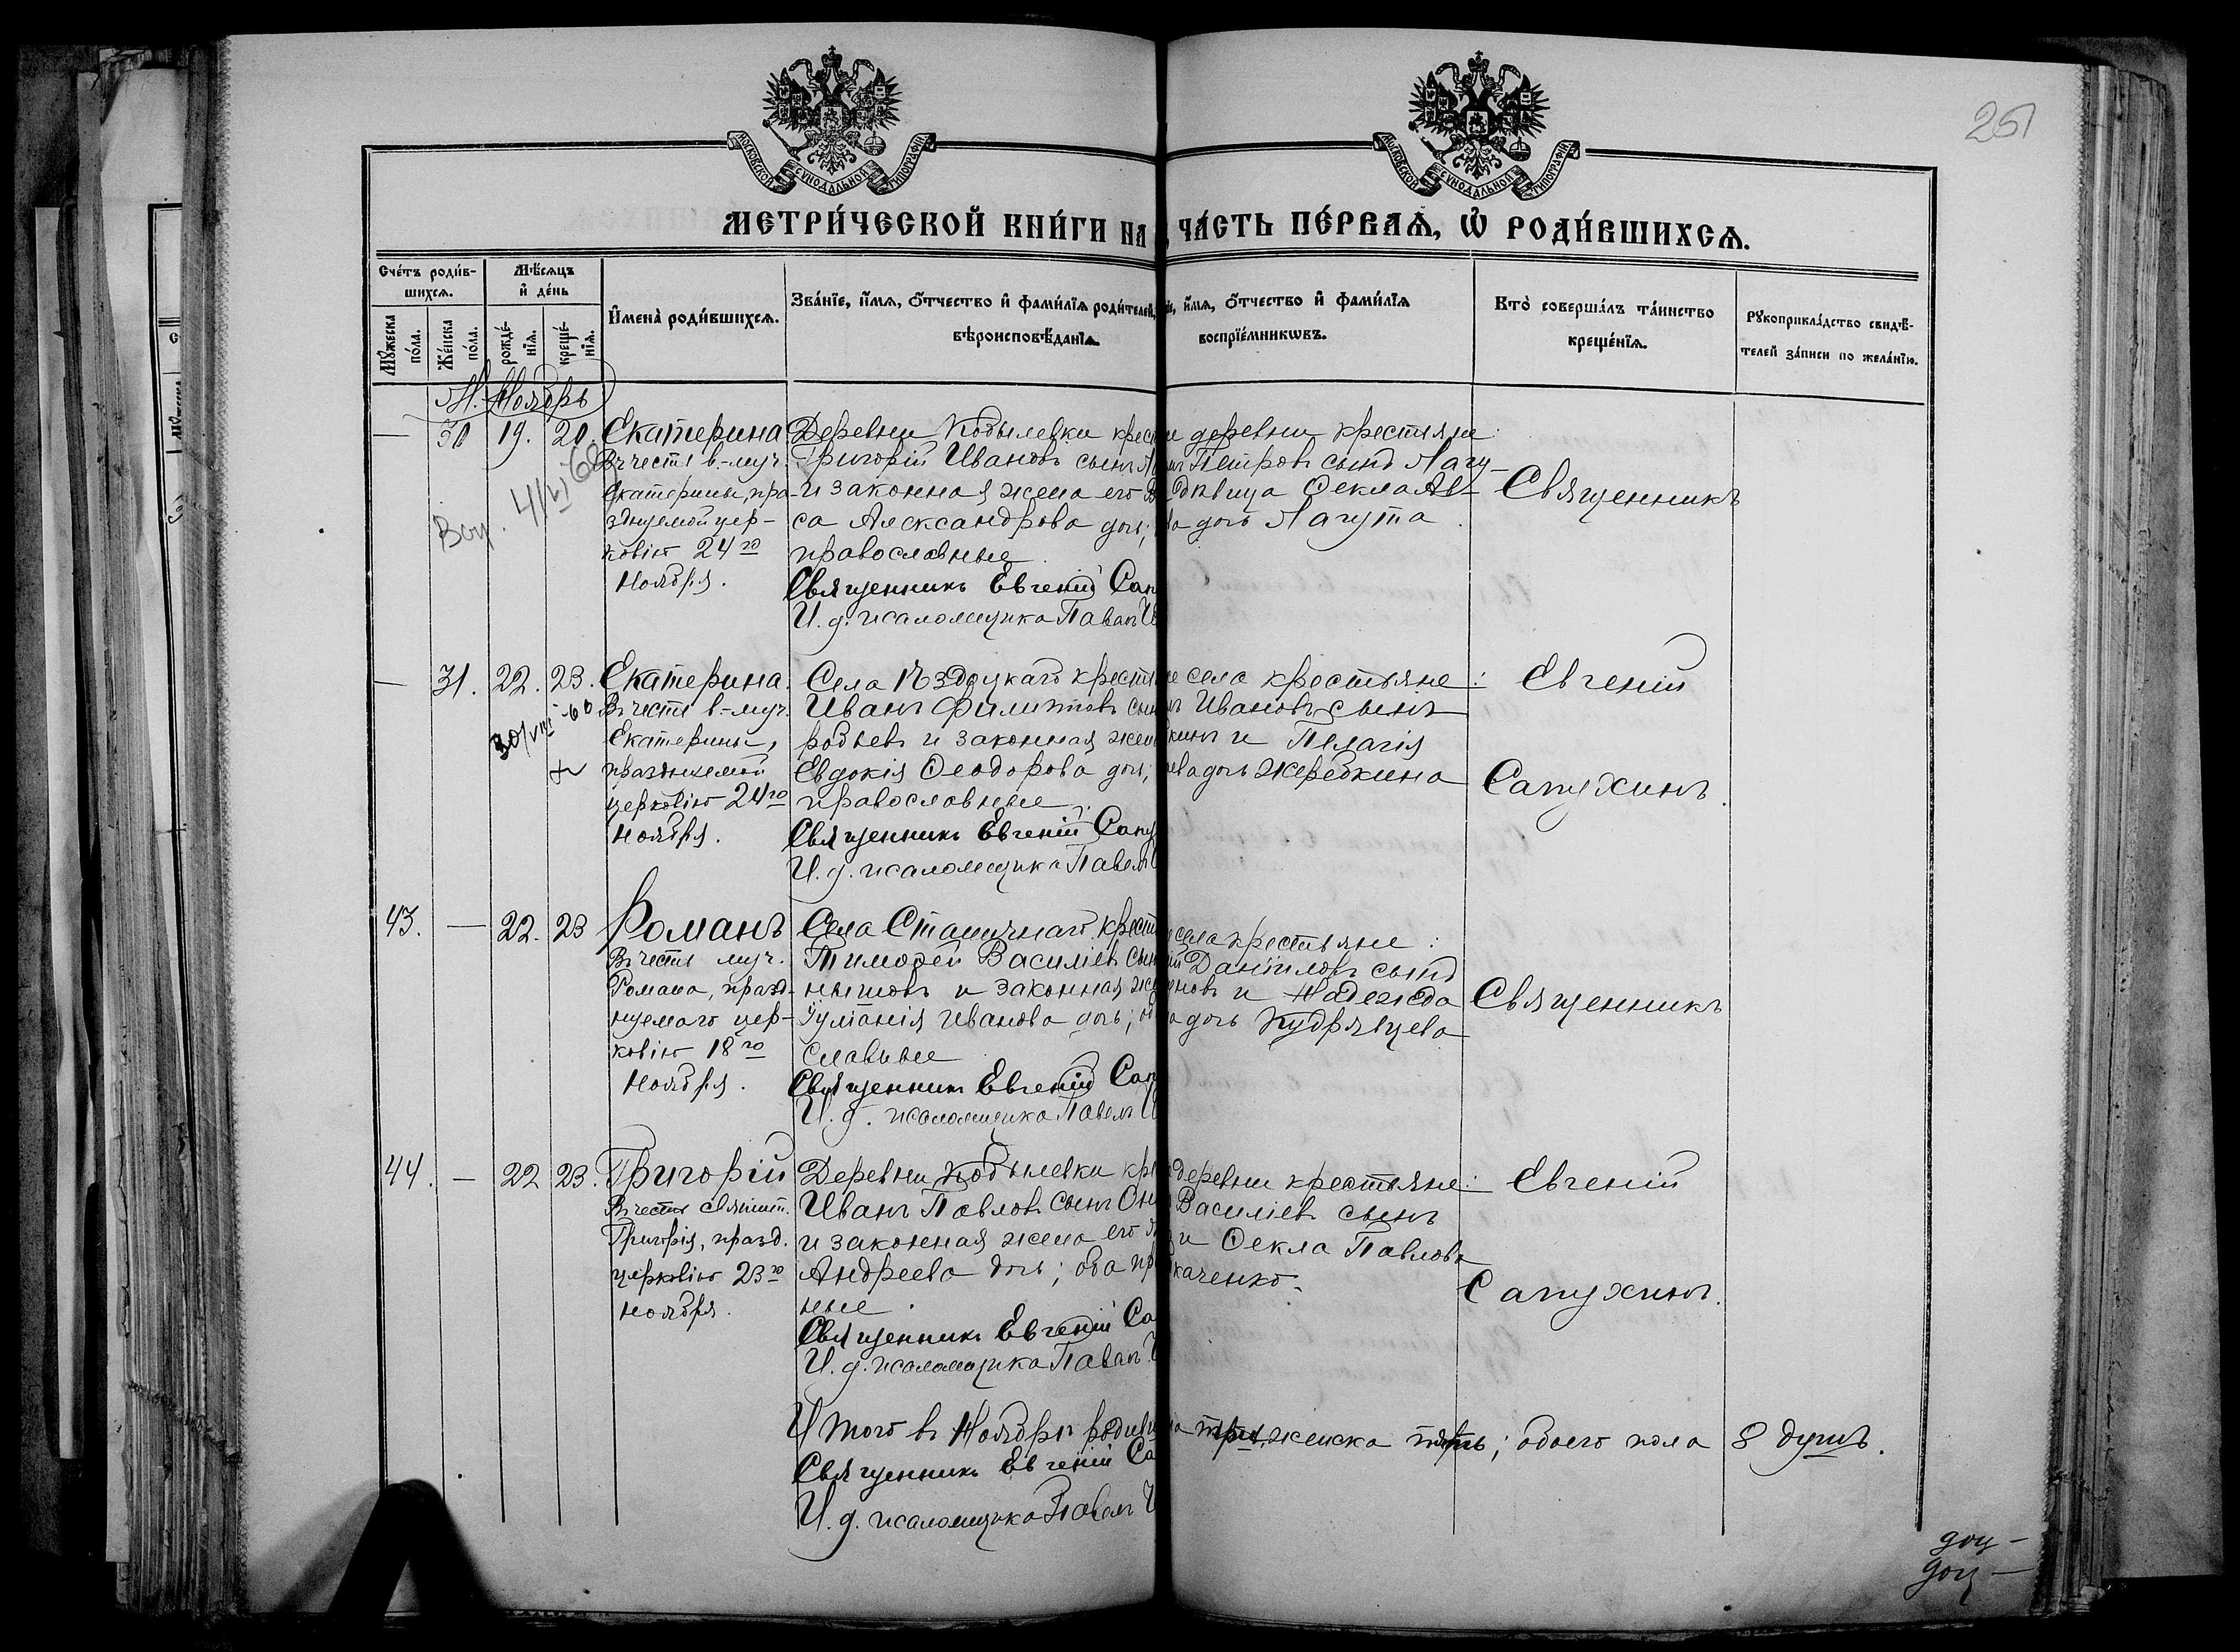 251
МОСКОВСКОЙ СѴНОДАЛЬНОЙ ТИПОГРАФІИ
МОСКОВСКОЙ СѴНОДАЛЬНОЙ ТИПОГРАФІИ
МЕТРИ́ЧЕСКОЙ КНИ́ГИ НА ЧА́СТЬ ПЕ́РВАѦ, Ѡ҆ РОДИ́ВШИХСѦ.
Сче́тъ роди́в-
шихсѧ.
Мꙋ́жеска
по́ла.
Же́нска
по́ла.
Мѣ́сѧцъ
и҆ де́нь
рожде́-
нїѧ.
креще́-
нїѧ.
И҆мена̀ роди́вшихсѧ.
Зва́нїе, и҆́мѧ, ѻ҆́тчество и҆ фами́лїѧ роди́телей,
вѣроисповѣ́данїѧ.
и҆́мѧ, ѻ҆́тчество и҆ фами́лїѧ
воспрїе́мникѡвъ.
Кто̀ соверша́лъ та́инство
креще́нїѧ.
Рꙋкоприкла́дство свидѣ́-
телей за́писи по жела́нїю.
М. Ноябрь
— 30 19. 20.
Екатерина
Въ честь в.-муч.
Екатерины, пра-
зднуемой цер-
ковію 24го
Ноября.
Деревни Кобылевки крест
Григорій Ивановъ сынъ
и законная жена его
са Александрова дочь;
православные.
Священникъ Евгеній Сап
И. д. псаломщика Павелъ
деревни крестьяне:
Петровъ сынъ Лагу-
дѣвица Ѳекла
дочь Лагута.
Священникъ
— 31. 22. 23.
30/VIII-60
Екатерина.
Въ честь в.-муч.
Екатерины,
празднуемой
церковію 24го
Ноября.
Села крест
Иванъ Филипповъ сын
родьевъ и законная жен
Евдокія Ѳеодорова дочь;
православные.
Священникъ Евгеній Сапу
И. д. псаломщика Павелъ
села крестьяне:
Ивановъ сынъ
и Пелагія
дочь Жеребкина
Евгеній
Сапухинъ.
43. — 22. 23
Романъ
Въ честь муч.
Романа, празд-
нуемаго цер-
ковію 18го
Ноября.
Села Станичнаго крест
Тимоѳей Василіевъ сын
и законная же
Іуліанія Иванова дочь;
славные
Священникъ Евгеній Сап
И. д. псаломщика Павелъ
села крестьяне:
Даніиловъ сынъ
и Надежда
дочь Кудрявцева
Священникъ
44. — 22 23.
Григорій
Въ честь святит.
Григорія, празд.
церковію 23го
Ноября.
Деревни Кобылевки кр
Иванъ Павловъ сынъ
и законная жена его
Андреева дочь; оба пр
ные.
Священникъ Евгеній Са
И. д. псаломщика Павелъ
деревни крестьяне:
Василіевъ сынъ
и Ѳекла Павлова
каченко.
Евгеній
Сапухинъ.
Итого въ Ноябрѣ роди три, женска пять; обоего пола 8 душъ.
Священникъ Евгеній Са
И. д. псаломщика Павелъ